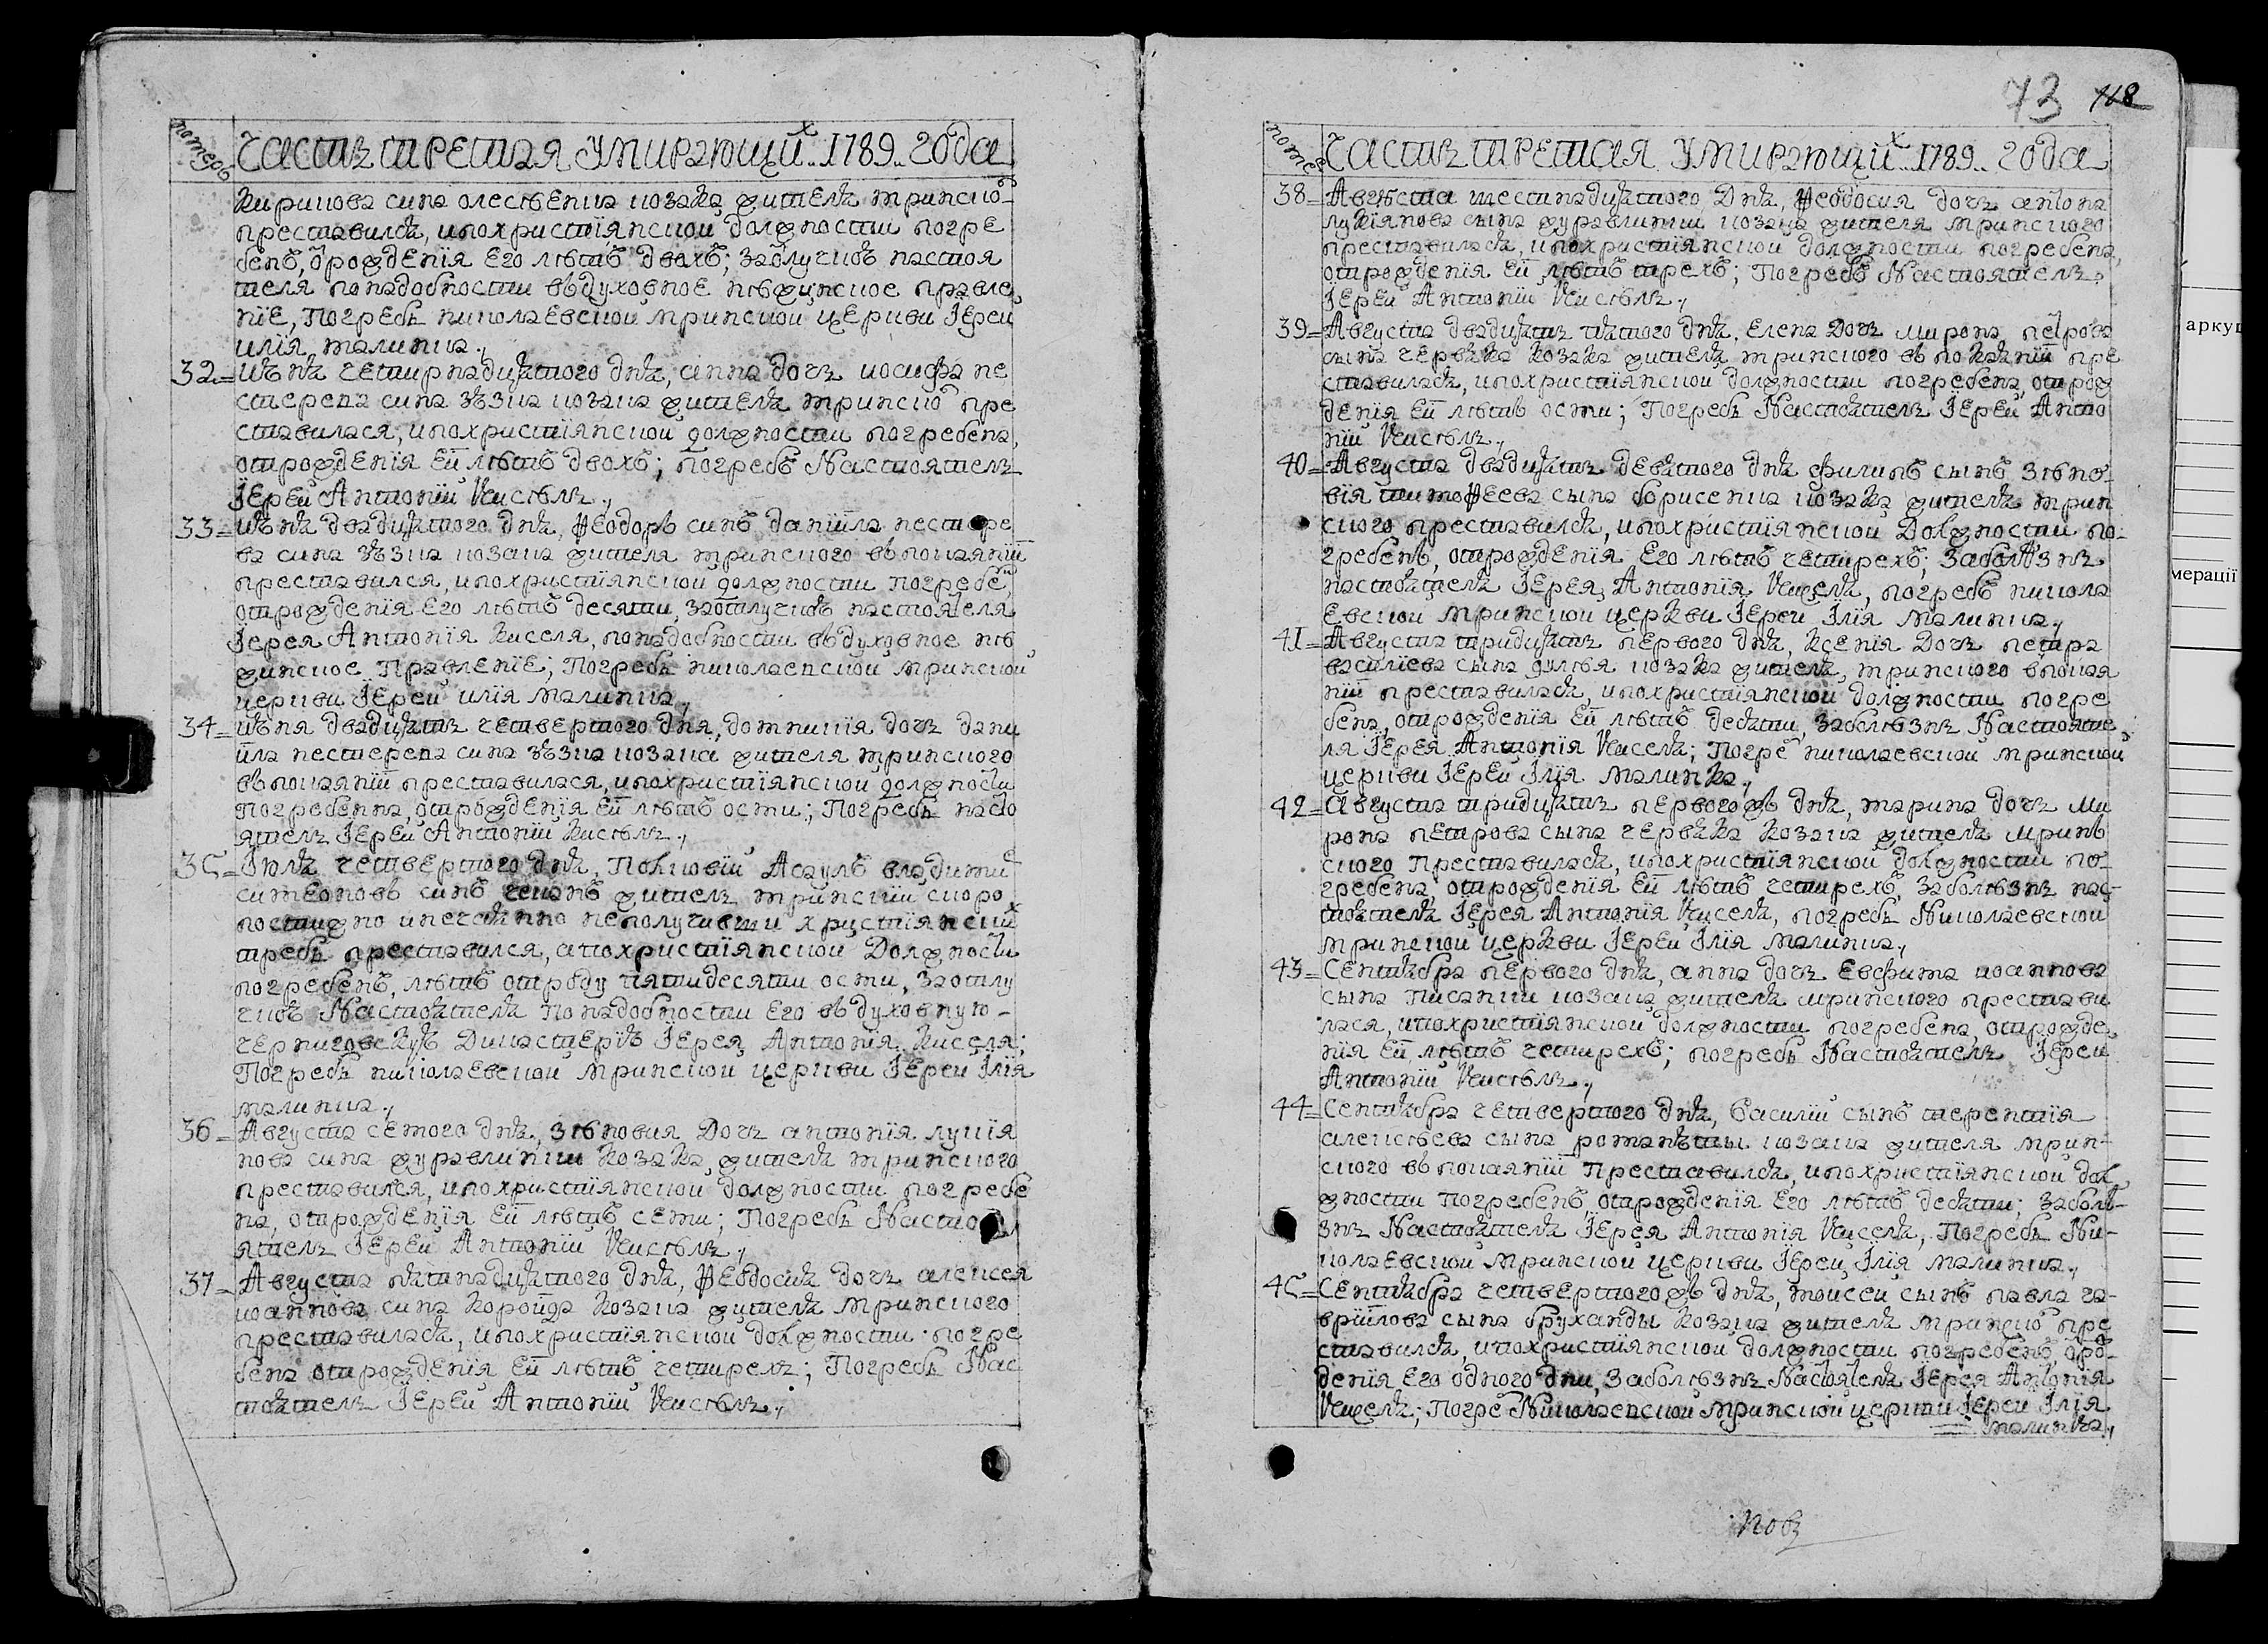 номеръ
часть третая умирающих 1789 года
Кирилова сина олесѣенка козака жителя мринско
преставился, и по христіянской должности погре
бенъ, о рожденія его лѣтъ двохъ; за отлучкоъ настоя
теля по надобности въ духовное нѣжинское правле
ніе, погребъ николаевской мринской церкви Іереи
илія малинка.
32 июня четирнадцятого дня, анна дочь иосифа не
стерева сина зѣзка козака жителя мринско пре
ставилася, и по христіянской должности погребена,
от рожденія ей лѣтъ двохъ; погребъ Настоятель
Іерей Антоній Кисѣль.
33 июня двадцятого дня, Ѳеодоръ синъ даніила нестере
ва сина зѣзка козака жителя мринского въ покаяніи
преставился, и по христіянской должности погребе,
от рожденія его лѣтъ десяти, за отлучкоъ настоятеля
Іерея Антонія Киселя, по надобности въ духовное нѣ
жинское правленіе; погребъ николаевской мринской
церкви Іерей илія малинка.
34 июня двадцять четвертого дня, домникія дочь дани
ила нестерева сина зѣзка козака жителя мринского
въ покаяніи преставилася, и по христіянской должности
погребенна, от рожденія ей лѣтъ осми; погребъ насто
ятель Іерей Антоній Кисѣль.
35 Іюля четвертого дня, Полковій Асаулъ владими
симеоновъ синъ жители мринскій скоро
постижно и нечаянно неполучивши христіянских
требъ преставился, а по христіянской должности
погребенъ, лѣтъ от роду пятидесяти осми, за отлу
чкоъ Настоятеля по надобности его въ духовную
черниговскую Дикастерію Іерея Антонія Киселя;
Погребъ николаевской мринской церкви Іереи Ілія
малинка.
36 Августа семого дня, зѣновия дочь антонія лукія
нова сина журавлинки козака жителя мринского
преставился, и по христіянской должности погребе
на, от рожденія ей лѣтъ семи; Погребъ Насто
ятель Іерей Антоній Кисѣль.
37 Августа пятнадцятого дня, Ѳеодосия дочь алексея
иоаннова сина Коройда козака жителя мринского
преставилася, и по христіянской должности погре
бена от рожденія ей лѣтъ четирехъ; Погребъ Нас
тоятель Іерей Антоній Кисѣль.
73 118
номер
часть третая умирающих 1789 года
38 Августа шестнадцятого дня, Ѳеодосия дочь антона
лукіянова сына журавлинки козака жителя мринского
преставилася, и по христіянской должности погребена,
от рожденія ей лѣтъ трехъ; Погребъ Настоятель
Іерей Антоній Кисѣль.
39 Августа двадцять пятого дня, Елена дочь мирона петрова
сына червяка козака жителя мринского въ покаяніи пре
ставилася, и по христіянской должности погребена, от рож
денія ей лѣтъ осми; Погребъ Настоятель Іерей Анто
ній Кисѣль.
40 Августа двадцять девятого дня филипъ сынъ зѣно
вія тимоѲеева сына борисенка козака жителя мрин
ского преставился, и по христіянской Должности по
гребенъ, от рожденія его лѣтъ четирехъ; за болѣзнь
настоятеля Іерея Антонія Киселя, погребъ никола
евской мринской церкви Іереи Ілія малинка.
41 Августа тридцять первого дня, Ксенія дочь петра
василіева сына жителя мринского в покая
ніи преставилася, и по христіянской должности погре
бена, от рожденія ей лѣтъ десяти, за болѣзнь Настояте
ля Іерея Антонія Киселя; Погре николаевской мринской
церкви Іерей Ілія малинка.
42 Августа тридцять первого жъ дня, марина дочь ми
рона петрова сына червяка козака жителя мринъ
ского преставилася, и по христіянской должности по
гребена, от рожденія ей лѣтъ четирехъ, за болѣзнь нас
тоятеля Іерея Антонія Киселя, погребъ Николаевской
мринской церкви Іереи Ілія малинка.
43 Сентября первого дня, анна дочь Евфима иоаннова
сына Писанки козака жителя мринского престави
лася, и по христіянской должности погребена, от рожде
нія ей лѣтъ четирехъ; погребъ Настоятель Іереи
Антоній Кисѣль.
44 Сентября четвертого дня, василій сынъ терентія
алексѣева сына козака жителя мрин
ского въ покаяніи преставился, и по христіянской дол
жности погребенъ от рожденія его лѣтъ десяти; за болѣ
знь Настоятеля Іерея Антонія Киселя, Погребъ Ни
колаевской мринской церкви Іереи, Ілія малинка.
45 Сентября четвертого жъ дня, моисей сынъ павла га
вриілова сына бруханды козака жителя мринско пре
ставился, и по христіянской должности погребенъ, о рож
денія его одного дни, за болѣзнь Настоятеля Іерея Антонія
Киселя; Погре Николаевской мринской церкви Іереи Ілія
малинка.